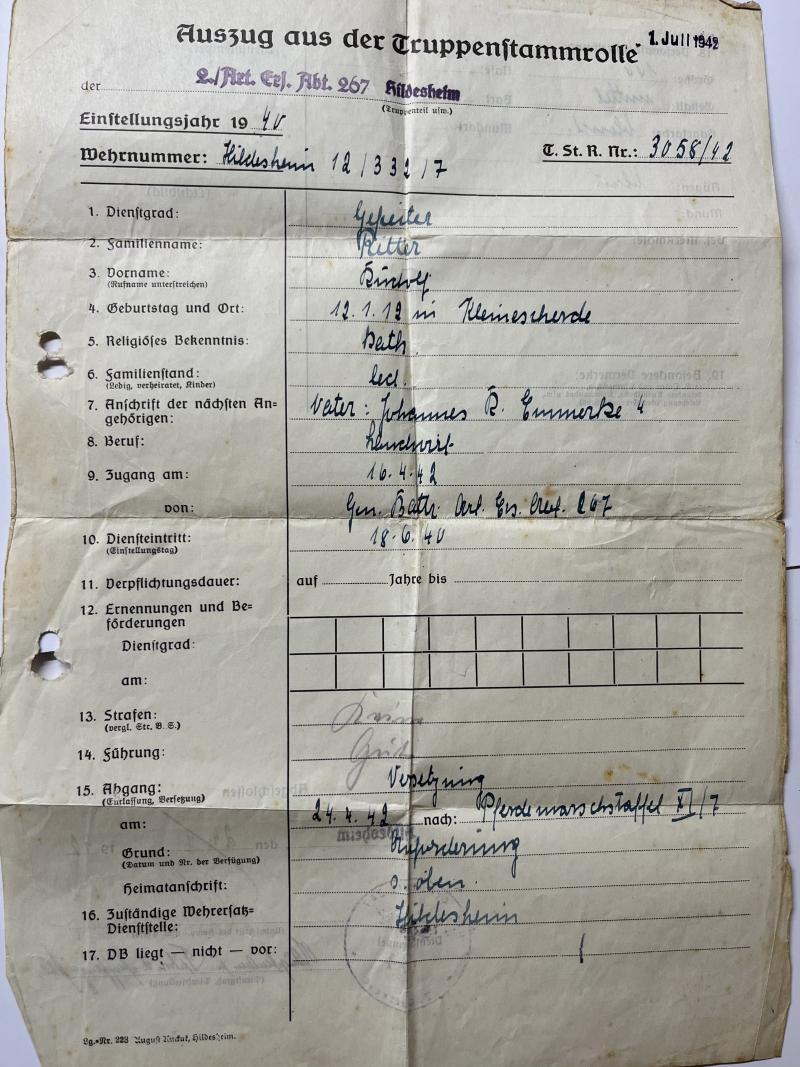 Auszug aus der Truppenstammrolle 1. Juli 1942
der 2./Art. Ers. Abt. 267 Hildesheim
(Truppenteil usw.)
Einstellungsjahr 19 40
Wehrnummer: Hildesheim 12/332/7 T. St. R. Nr.: 3058/42
1. Dienstgrad: Gefreiter
2. Familienname: Ritter
3. Vorname: Rudolf
(Rufname unterstreichen)
4. Geburtstag und Ort: 12.1.12 in Kleinescherde
5. Religiöses Bekenntnis: Kath.
6. Familienstand: led.
(Ledig, verheiratet, Kinder)
7. Anschrift der nächsten An= Vater: Johannes R. Emmerke 4
gehörigen:
8. Beruf: Landwirt
9. Zugang am: 16.4.42
von: Gen. Battr. Art. Ers. 267
10. Diensteintritt: 18.6.40
(Einstellungstag)
11. Verpflichtungsdauer: auf Jahre bis
12. Ernennungen und Be=
förderungen
Dienstgrad:
am:
13. Strafen: Keine
(vergl. Str. B. S.)
14. Führung: Gut
15. Abgang: Versetzung
(Entlassung, Versetzung)
am: 24.4.42 nach: Pferdemarschstaffel XI/7
Grund: Anforderung
(Datum und Nr. der Verfügung)
Heimatanschrift: s. oben
16. Zuständige Wehrersatz= Hildesheim
Dienststelle:
17. DB liegt — nicht — vor:
Lg.=Nr. 223 August Kuckuk, Hildesheim.